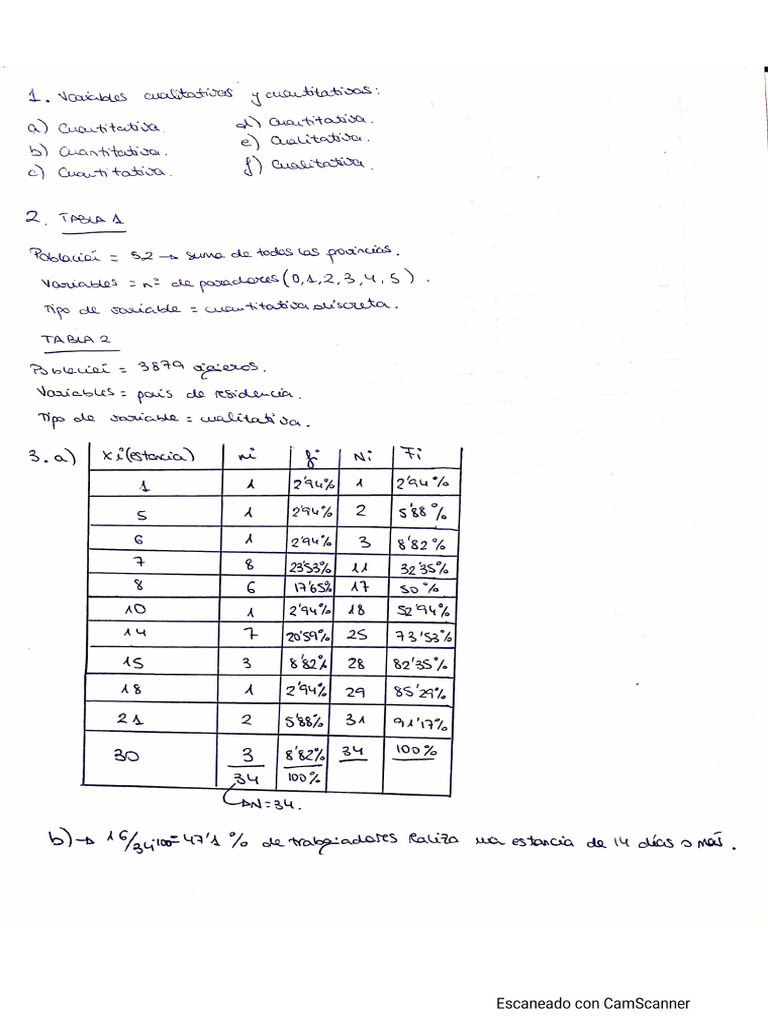 1. Variables cualitativas y cuantitativas:
a) Cuantitativa.
b) Cuantitativa.
c) Cuantitativa.
d) Cuantitativa.
e) Cualitativa.
f) Cualitativa.
2. TABLA 1
Población = 52 → suma de todas las provincias.
Variables = nº de paradores (0, 1, 2, 3, 4, 5).
Tipo de variable = cuantitativa discreta.
TABLA 2
Población = 3879 viajeros.
Variables = país de residencia.
Tipo de variable = cualitativa.
3. a) xi (estancia) ni fi Ni Fi
1 1 2'94% 1 2'94%
5 1 2'94% 2 5'88%
6 1 2'94% 3 8'82%
7 8 23'53% 11 32'35%
8 6 17'65% 17 50%
10 1 2'94% 18 52'94%
14 7 20'59% 25 73'53%
15 3 8'82% 28 82'35%
18 1 2'94% 29 85'29%
21 2 5'88% 31 91'17%
30 3 8'82% 34 100%
34 100%
→ N=34.
b) → 16/34·100=47'1 % de trabajadores realiza una estancia de 14 días o más.
Escaneado con CamScanner